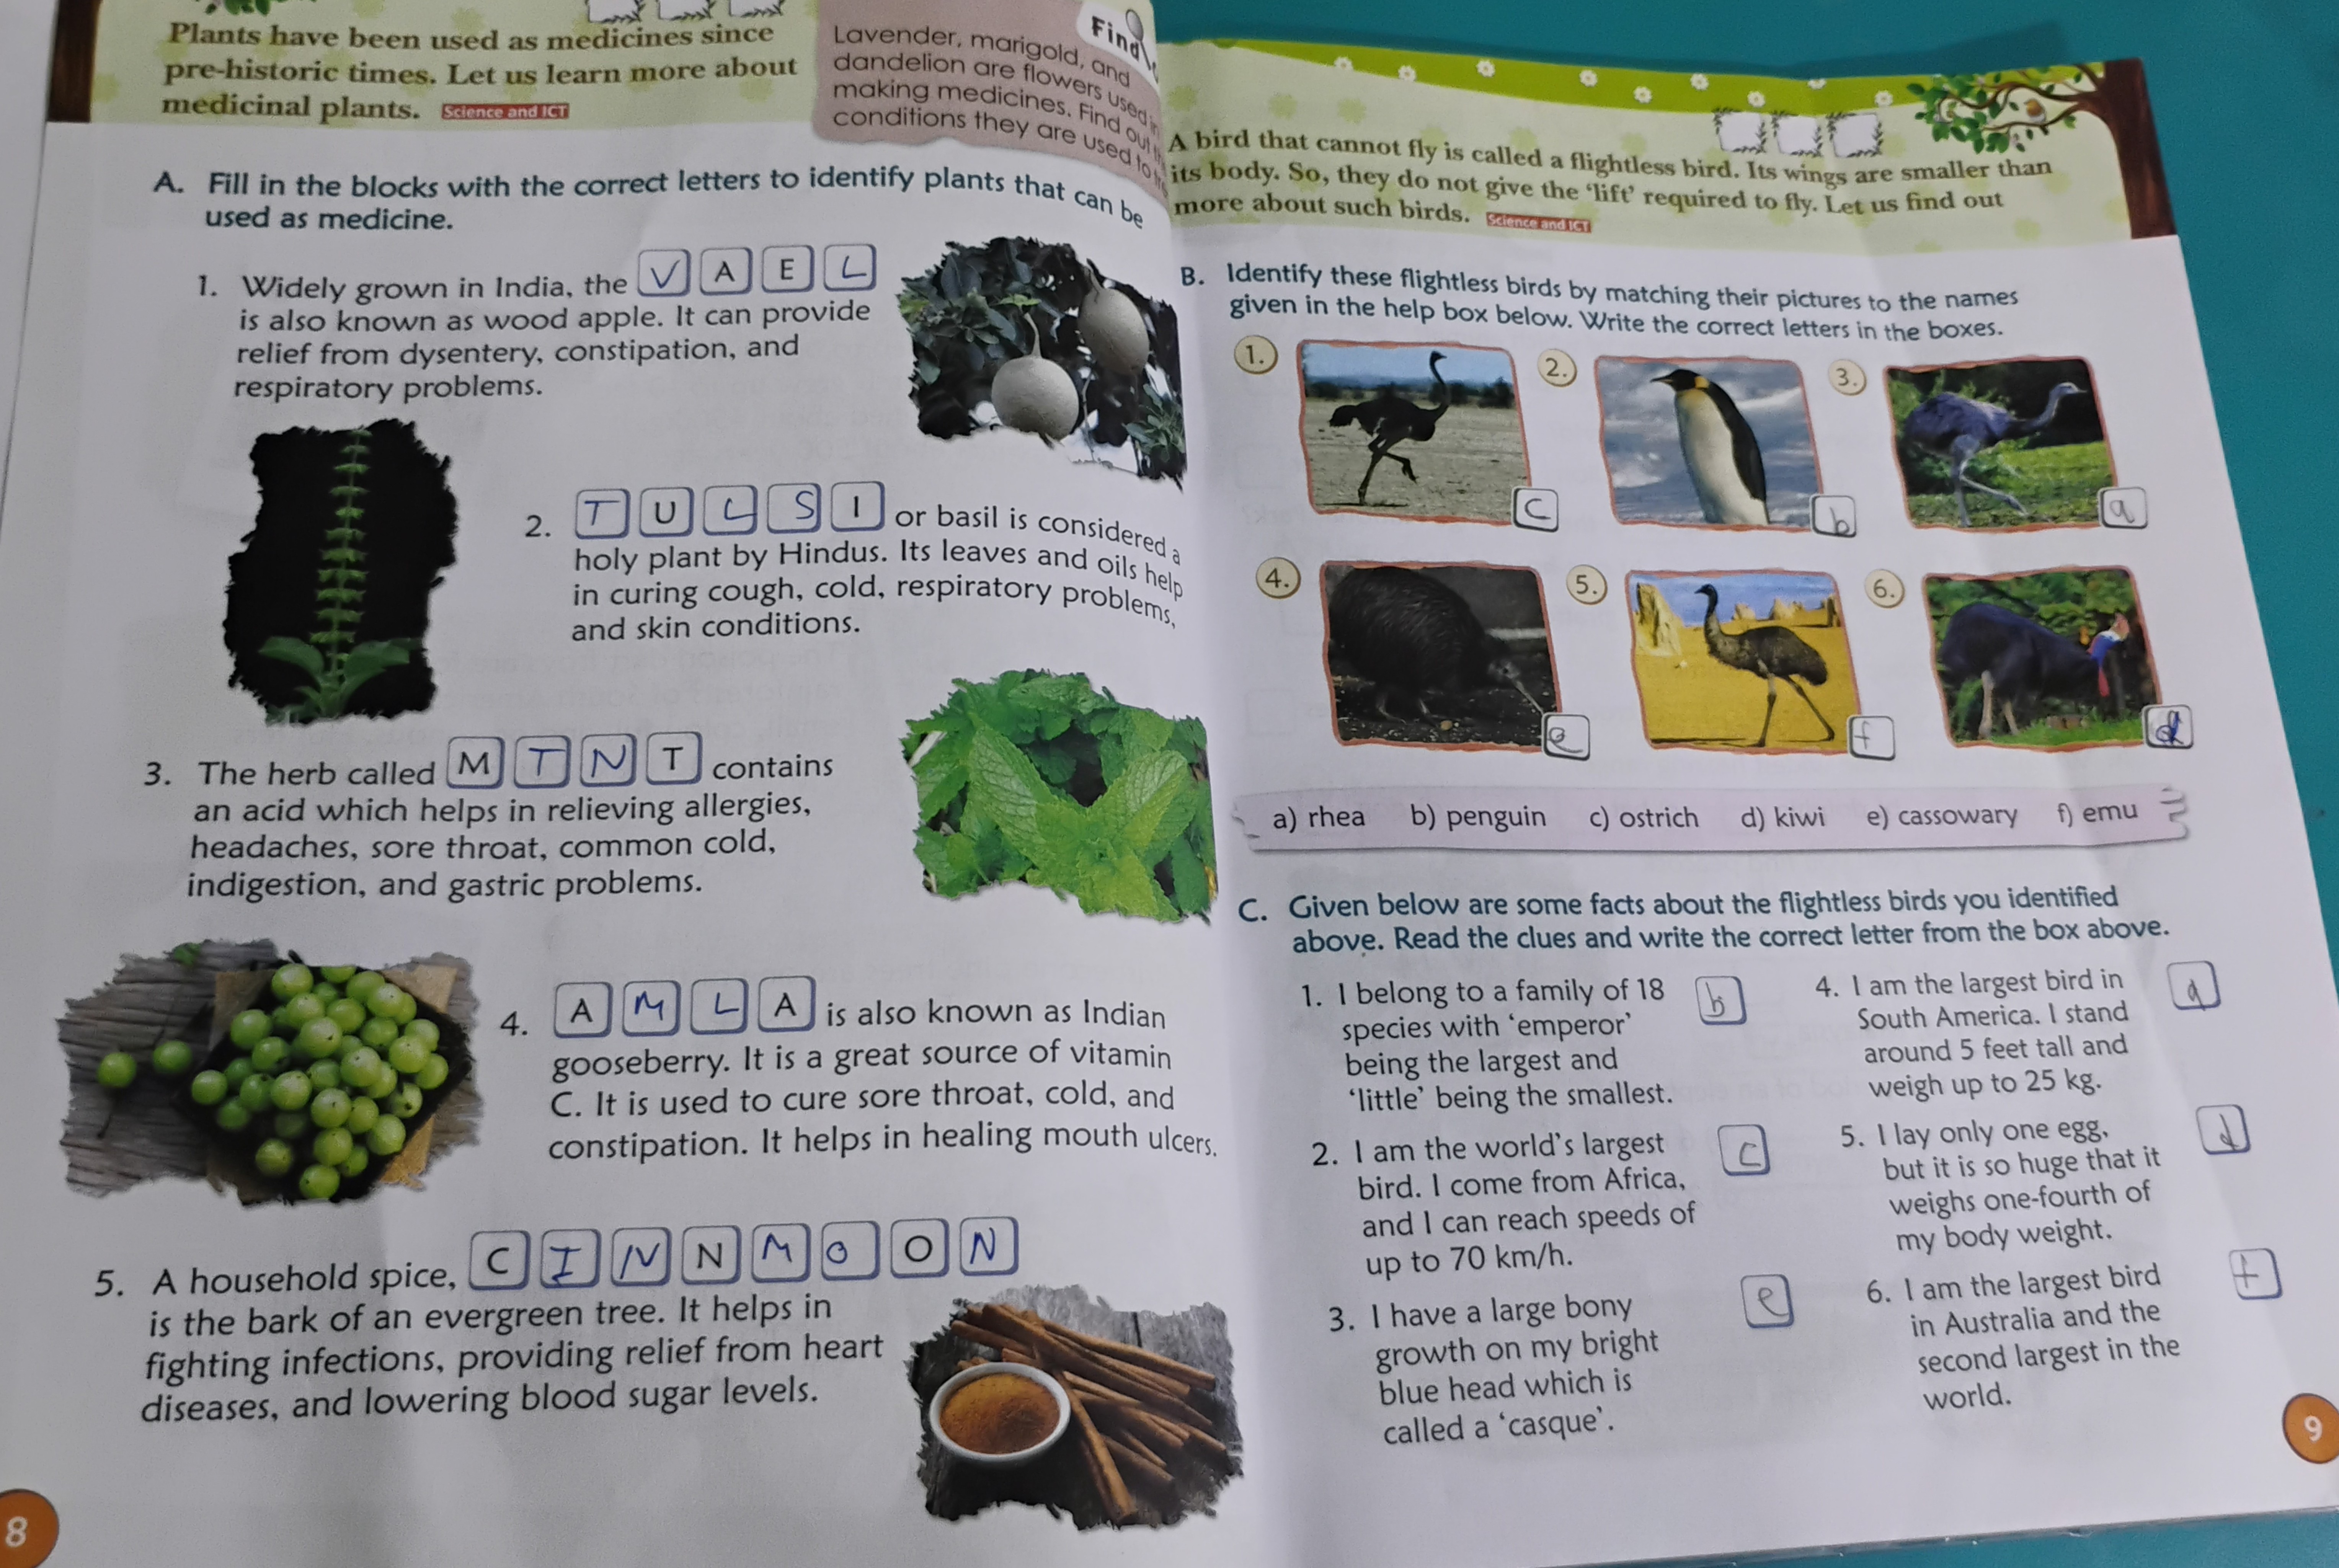 Plants have been used as medicines since
pre-historic times. Let us learn more about
medicinal plants. Science and ICT
Find
Lavender, marigold, and
dandelion are flowers used in
making medicines. Find out
conditions they are used to
A. Fill in the blocks with the correct letters to identify plants that can be
used as medicine.
1. Widely grown in India, the V A E L
is also known as wood apple. It can provide
relief from dysentery, constipation, and
respiratory problems.
2. T U L S I or basil is considered a
holy plant by Hindus. Its leaves and oils help
in curing cough, cold, respiratory problems,
and skin conditions.
3. The herb called M T N T contains
an acid which helps in relieving allergies,
headaches, sore throat, common cold,
indigestion, and gastric problems.
4. A M L A is also known as Indian
gooseberry. It is a great source of vitamin
C. It is used to cure sore throat, cold, and
constipation. It helps in healing mouth ulcers.
5. A household spice, C I N N M O O N
is the bark of an evergreen tree. It helps in
fighting infections, providing relief from heart
diseases, and lowering blood sugar levels.
8
A bird that cannot fly is called a flightless bird. Its wings are smaller than
its body. So, they do not give the ‘lift’ required to fly. Let us find out
more about such birds. Science and ICT
B. Identify these flightless birds by matching their pictures to the names
given in the help box below. Write the correct letters in the boxes.
1. c 2. b 3. a
4. e 5. f 6. d
a) rhea b) penguin c) ostrich d) kiwi e) cassowary f) emu
C. Given below are some facts about the flightless birds you identified
above. Read the clues and write the correct letter from the box above.
1. I belong to a family of 18 b
species with ‘emperor’
being the largest and
‘little’ being the smallest.
2. I am the world’s largest c
bird. I come from Africa,
and I can reach speeds of
up to 70 km/h.
3. I have a large bony e
growth on my bright
blue head which is
called a ‘casque’.
4. I am the largest bird in a
South America. I stand
around 5 feet tall and
weigh up to 25 kg.
5. I lay only one egg, d
but it is so huge that it
weighs one-fourth of
my body weight.
6. I am the largest bird f
in Australia and the
second largest in the
world.
9